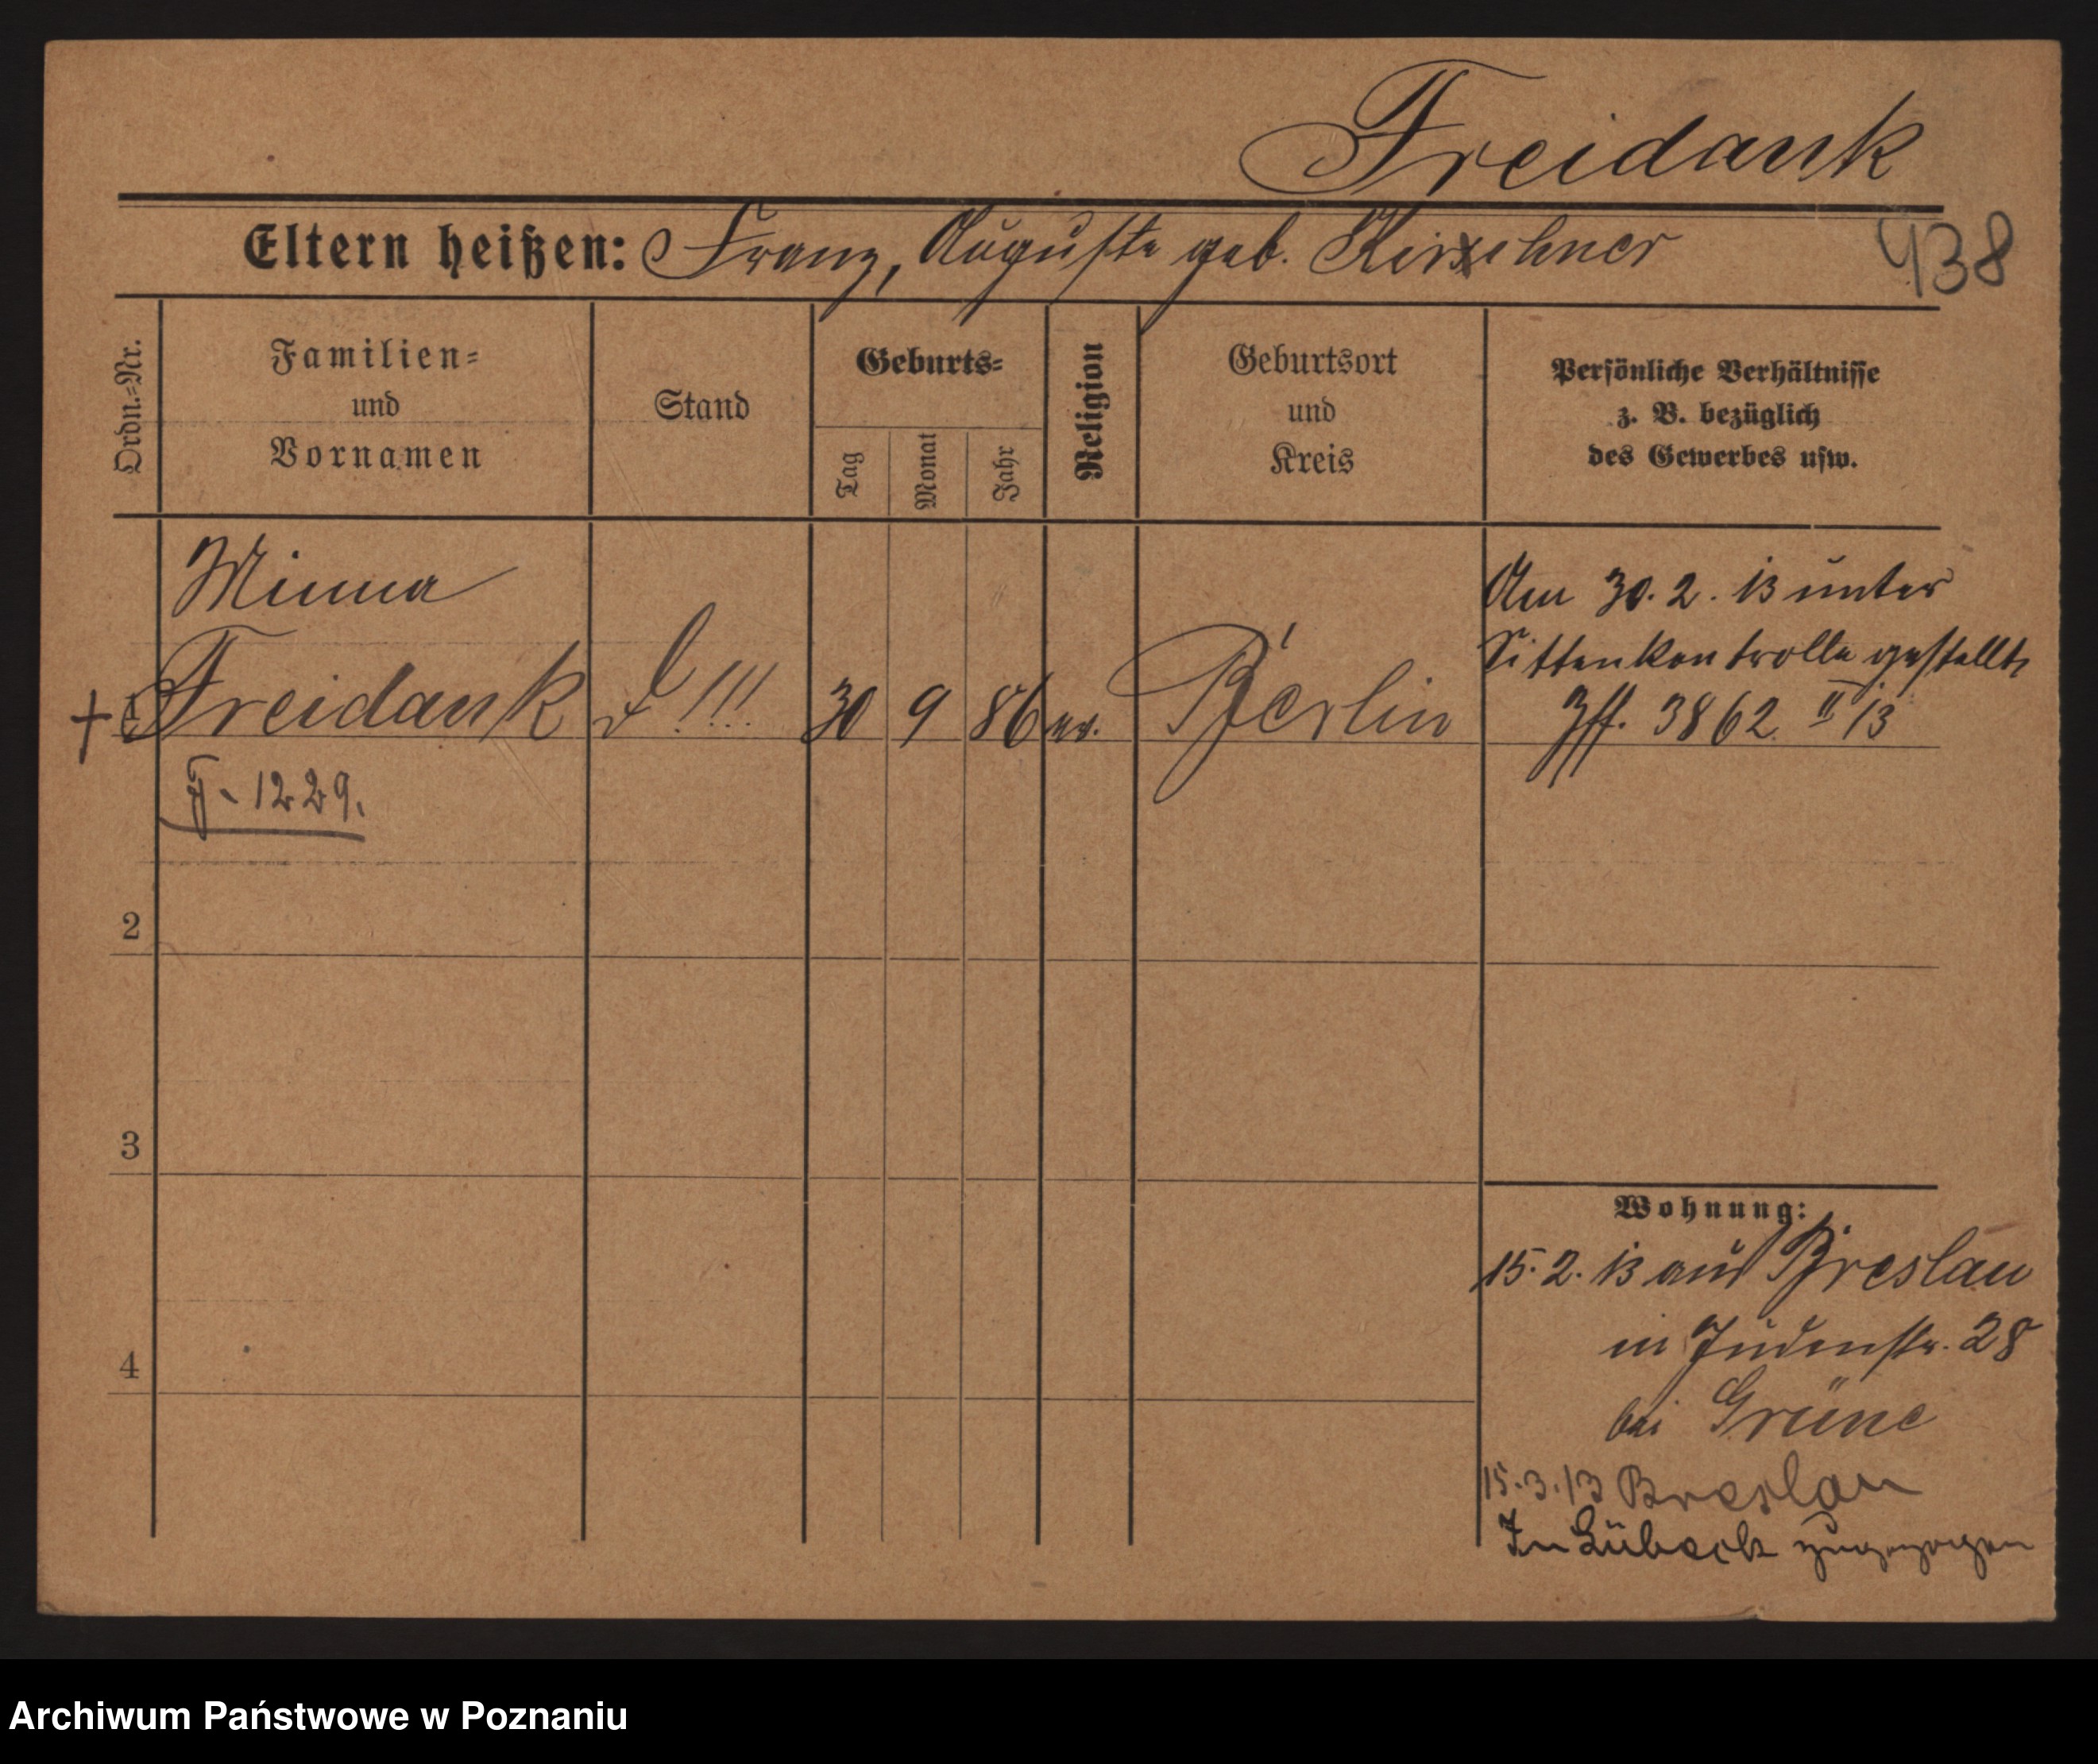 Freidank
Eltern heißen: Franz, Auguste geb. Kirschner
438
Ordn.=Nr.
Familien=
und
Vornamen
Stand
Geburts=
Tag
Monat
Jahr
Religion
Geburtsort
und
Kreis
Persönliche Verhältnisse
z. B. bezüglich
des Gewerbes usw.
Minna
+ 1 Freidank !!! 30 9 86 ev. Berlin
II. 1229.
Am 30.2.13 unter
Sittenkontrolle gestellt
3862 II 13
2
3
4
Wohnung:
15.2.13 aus Breslau
in Judenstr. 28
bei Grüne
15.3.13 Breslau
In Lübeck zugezogen
Archiwum Państwowe w Poznaniu